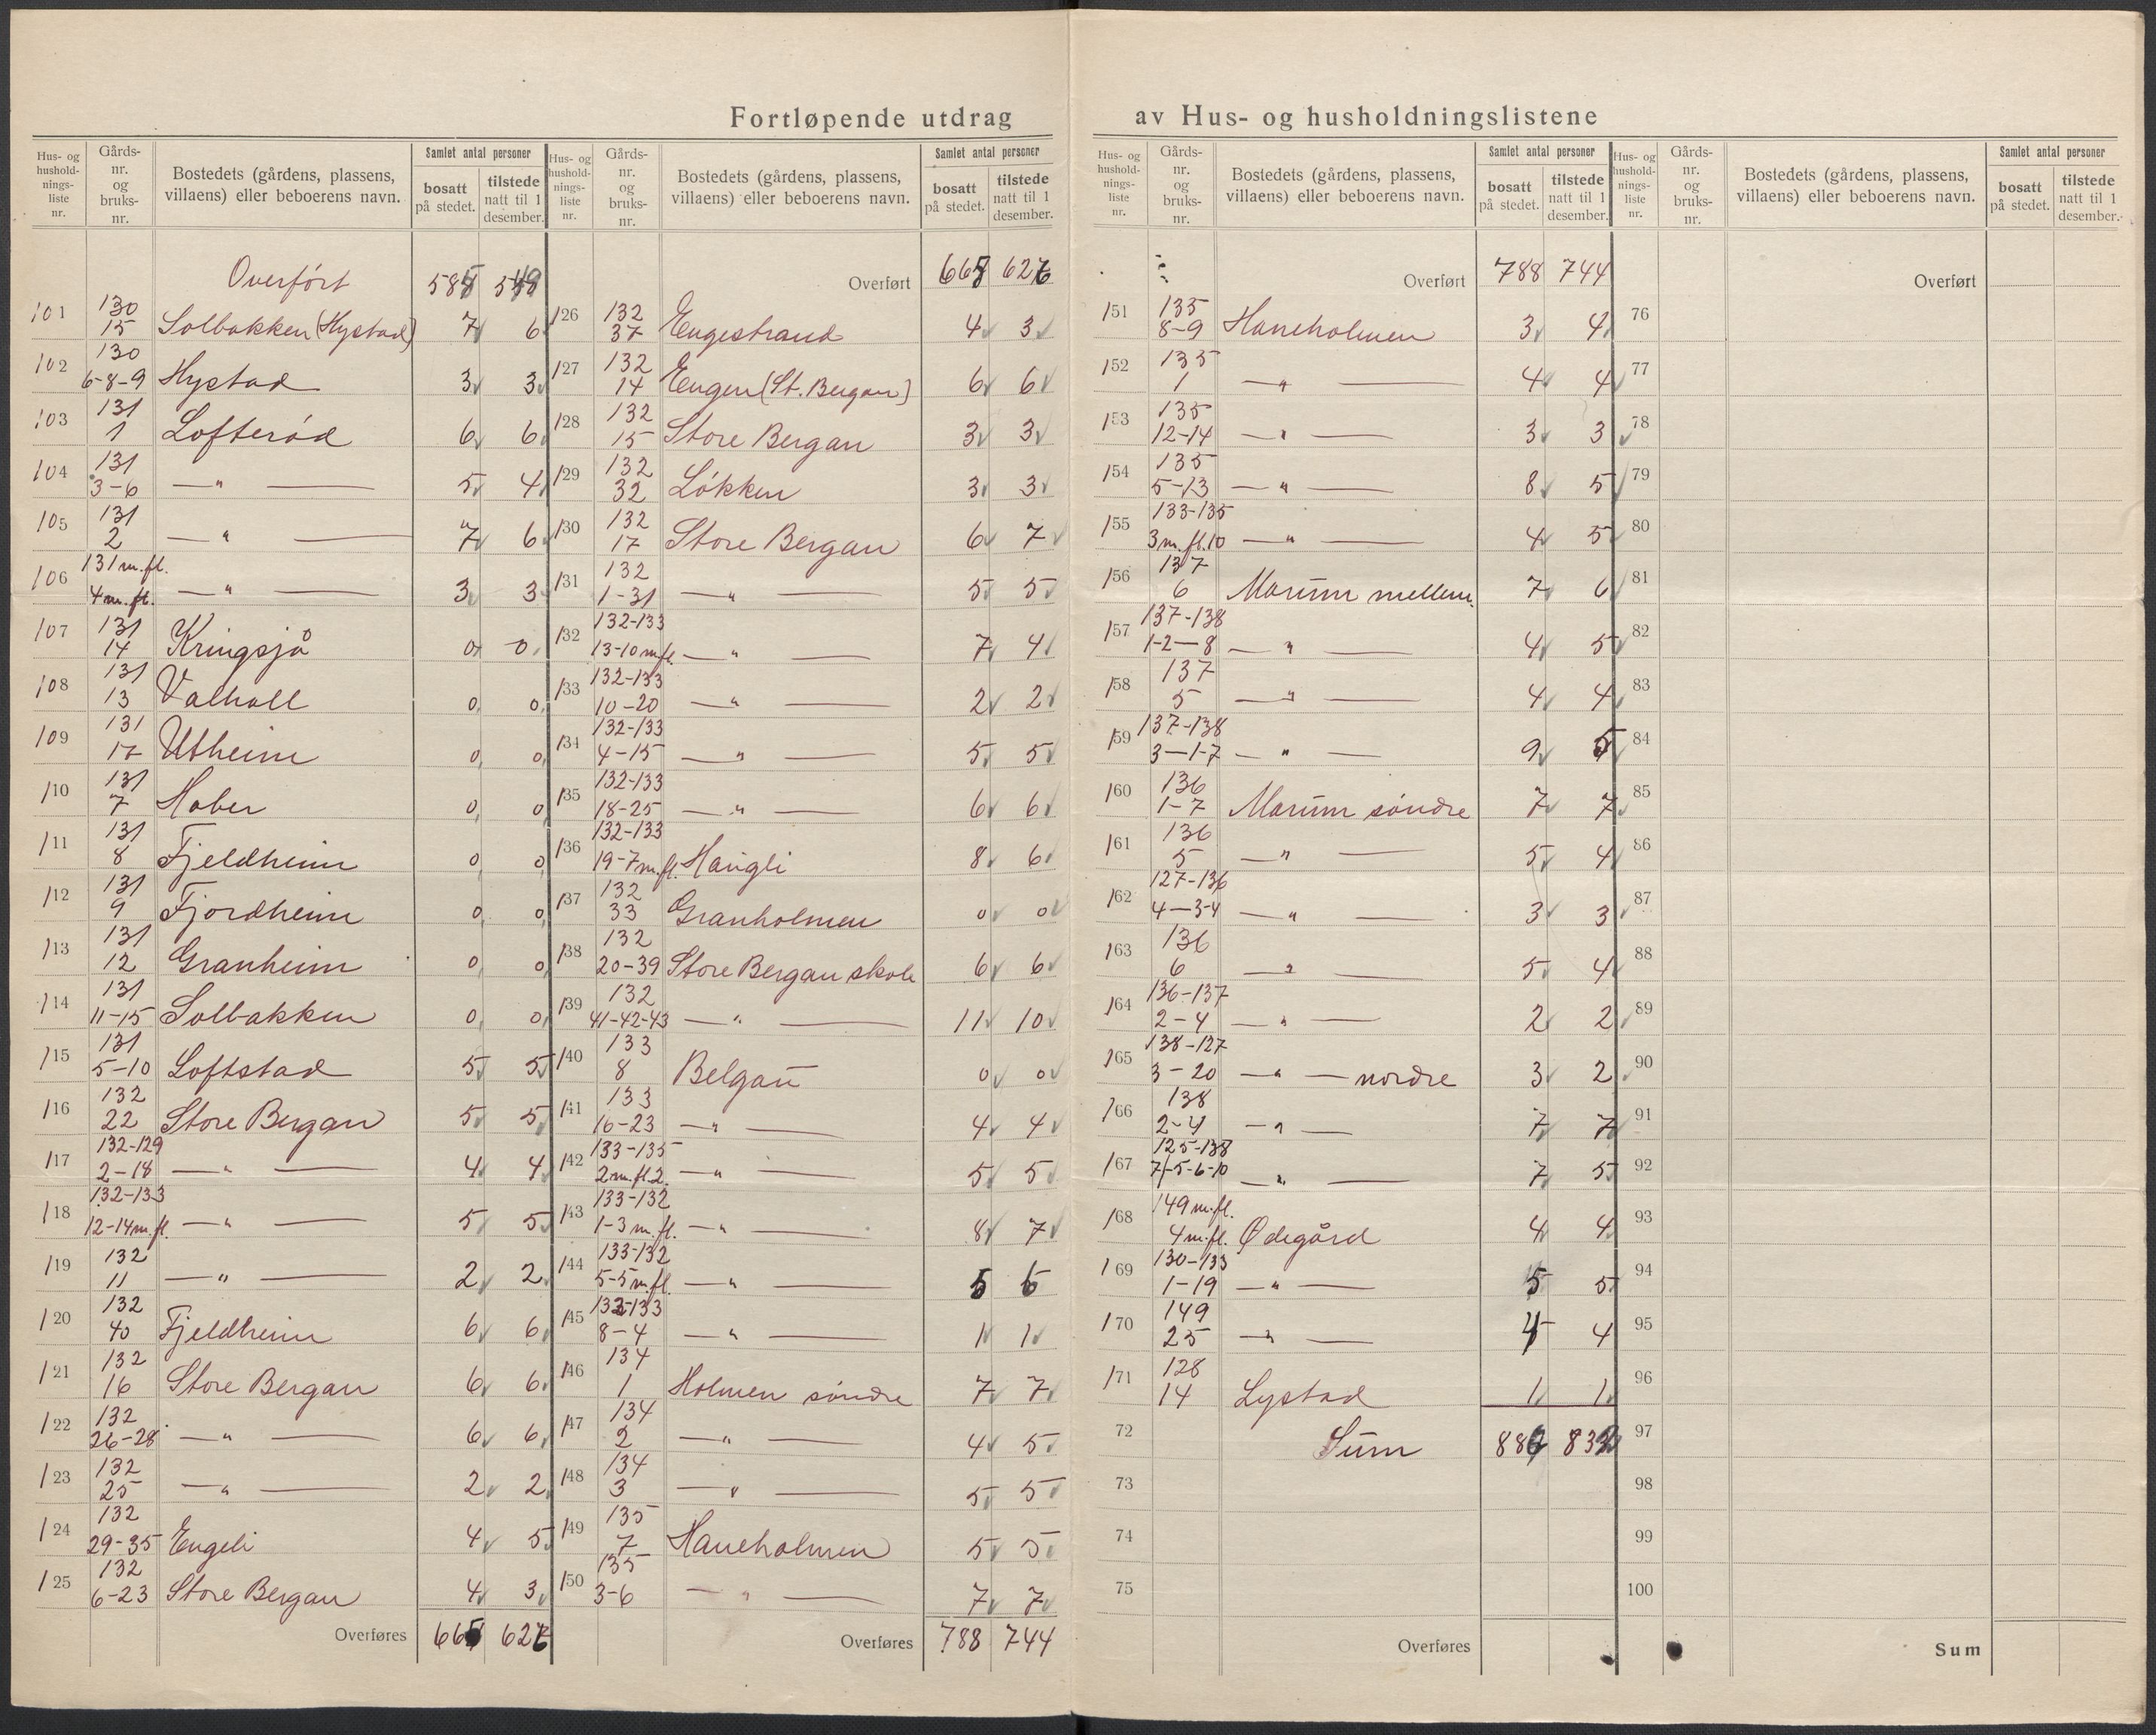 Fortløpende utdrag av Hus- og husholdningslistene
Hus- og husholdnings- liste nr. | Gårds- nr. og bruks- nr. | Bostedets (gårdens, plassens, villaens) eller beboerens navn. | Samlet antal personer | bosatt på stedet. | tilstede natt til 1 desember.
Overført
101 130 15 Solbakken (Hystad) 7 6
102 130 6-8-9 Hystad 3 3
103 131 1 Lofterød 6 6
104 131 3-6 —"— 5 4
105 131 2 —"— 7 6
106 131 m.fl. 4 m.fl. —"— 3 3
107 131 14 Kringsjå 0 0
108 131 13 Valhall 0 0
109 131 17 Utheim 0 0
110 131 7 Haber 0 0
111 131 8 Fjeldheim 0 0
112 131 9 Fjordheim 0 0
113 131 12 Granheim 0 0
114 131 11-15 Solbakken 0 0
115 131 5-10 Loftstad 5 5
116 132 22 Store Bergan 5 5
117 132-129 2-18 —"— 4 4
118 132-133 12-14 m.fl. —"— 5 5
119 132 11 —"— 2 2
120 132 40 Fjeldheim 6 6
121 132 16 Store Bergan 6 6
122 132 26-28 —"— 6 6
123 132 25 —"— 2 2
124 132 29-35 Engeli 4 5
125 132 6-23 Store Bergan 4 3
Overføres
Hus- og husholdnings- liste nr. | Gårds- nr. og bruks- nr. | Bostedets (gårdens, plassens, villaens) eller beboerens navn. | Samlet antal personer | bosatt på stedet. | tilstede natt til 1 desember.
Overført
126 132 37 Engestrand 4 3
127 132 14 Engen (St. Bergan) 6 6
128 132 15 Store Bergan 3 3
129 132 32 Løkken 3 3
130 132 17 Store Bergan 6 7
131 132 1-31 —"— 5 5
132 132-133 13-10 m.fl. —"— 7 4
133 132-133 10-20 —"— 2 2
134 132-133 4-15 —"— 5 5
135 132-133 18-25 —"— 6 6
136 132-133 19-7 m.fl. Haugli 8 6
137 132 33 Granholmen 0 0
138 132 20-39 Store Bergan skole 6 6
139 132 41-42-43 —"— 11 10
140 133 8 Belgau 0 0
141 133 16-23 —"— 4 4
142 133-135 2 m.fl. 2. —"— 5 5
143 133-132 1-3 m.fl. —"— 8 7
144 133-132 5-5 m.fl. —"— 5
145 132-133 8-4 —"— 1 1
146 134 1 Holmen søndre 7 7
147 134 2 —"— 4 5
148 134 3 —"— 5 5
149 135 7 Haneholmen 5 5
150 135 3-6 —"— 7 7
Overføres 788 744
Hus- og husholdnings- liste nr. | Gårds- nr. og bruks- nr. | Bostedets (gårdens, plassens, villaens) eller beboerens navn. | Samlet antal personer | bosatt på stedet. | tilstede natt til 1 desember.
Overført 788 744
151 135 8-9 Haneholmen 3 4
152 135 1 —"— 4 4
153 135 12-14 —"— 3 3
154 135 5-13 —"— 8 5
155 133-135 3 m.fl. 10 —"— 4 5
156 137 6 Marum mellem. 7 6
157 137-138 1-2-8 —"— 4 5
158 137 5 —"— 4 4
159 137-138 3-1-7 —"— 9 5
160 136 1-7 Marum søndre 7 7
161 136 5 —"— 5 4
162 127-136 4-3-4 —"— 3 3
163 136 6 —"— 5 4
164 136-137 2-4 —"— 2 2
165 138-127 3-20 —"— nordre 3 2
166 138 2-4 —"— 7 7
167 125-138 7-5-6-10 —"— 7 5
168 149 m.fl. 4 m.fl. Ødegård 4 4
169 130-133 1-19 —"— 5 5
170 149 25 —"— 4 4
171 128 14 Lystad 1 1
72 Sum
73
74
75
Overføres
Hus- og husholdnings- liste nr. | Gårds- nr. og bruks- nr. | Bostedets (gårdens, plassens, villaens) eller beboerens navn. | Samlet antal personer | bosatt på stedet. | tilstede natt til 1 desember.
Overført
76
77
78
79
80
81
82
83
84
85
86
87
88
89
90
91
92
93
94
95
96
97
98
99
100
Sum